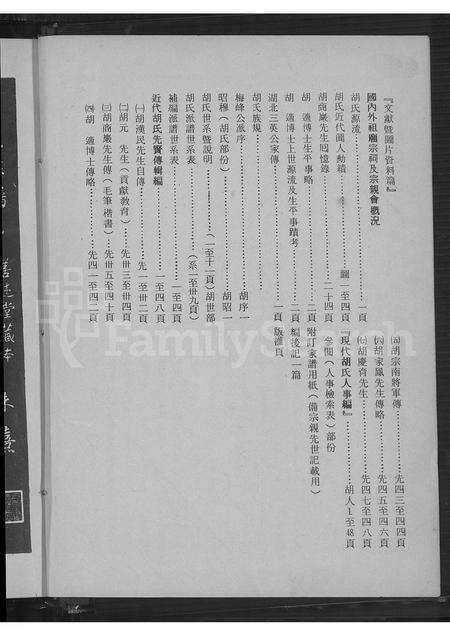 『文獻暨圖片資料篇』
國內外祖廟宗祠及宗親會概況
胡氏源流………………一頁
胡氏近代圖人動績………………圖一至四頁
胡商巖先生回憶錄………………二十四頁
胡　適博士生平事略………………二頁
胡　適博士上世源流及生平事蹟考………………二頁
湖北三英公家傳………………一頁
胡氏族規
梅峰公派序………………胡序一
昭穆（胡氏部份）………………胡昭一
胡氏世系暨說明………………（一至十一頁）胡世部
胡氏派譜世系表………………（系一至卅九頁）
補編派譜世系表………………一至四頁
近代胡氏先賢傳輯編………………一至四八頁
㈠胡漢民先生自傳………………先一至卅二頁
㈡胡元　先生（貢獻教育）………………先卅三至卅四頁
㈢胡商巖先生傳（毛筆楷書）………………先卅五至四十頁
㈣胡　適博士傳略………………先四一至四二頁
㈤胡宗南將軍傳………………先四三至四四頁
㈥胡家鳳先生傳略………………先四五至四六頁
㈦胡慶育先生………………先四七至四八頁
『現代胡氏人事編』………………胡人1至48頁
參閱（人事檢索表）部份
附訂家譜用紙（備宗親先世記載用）
編後記一篇
版權頁
善述堂藏本
朱熹
FamilySearch